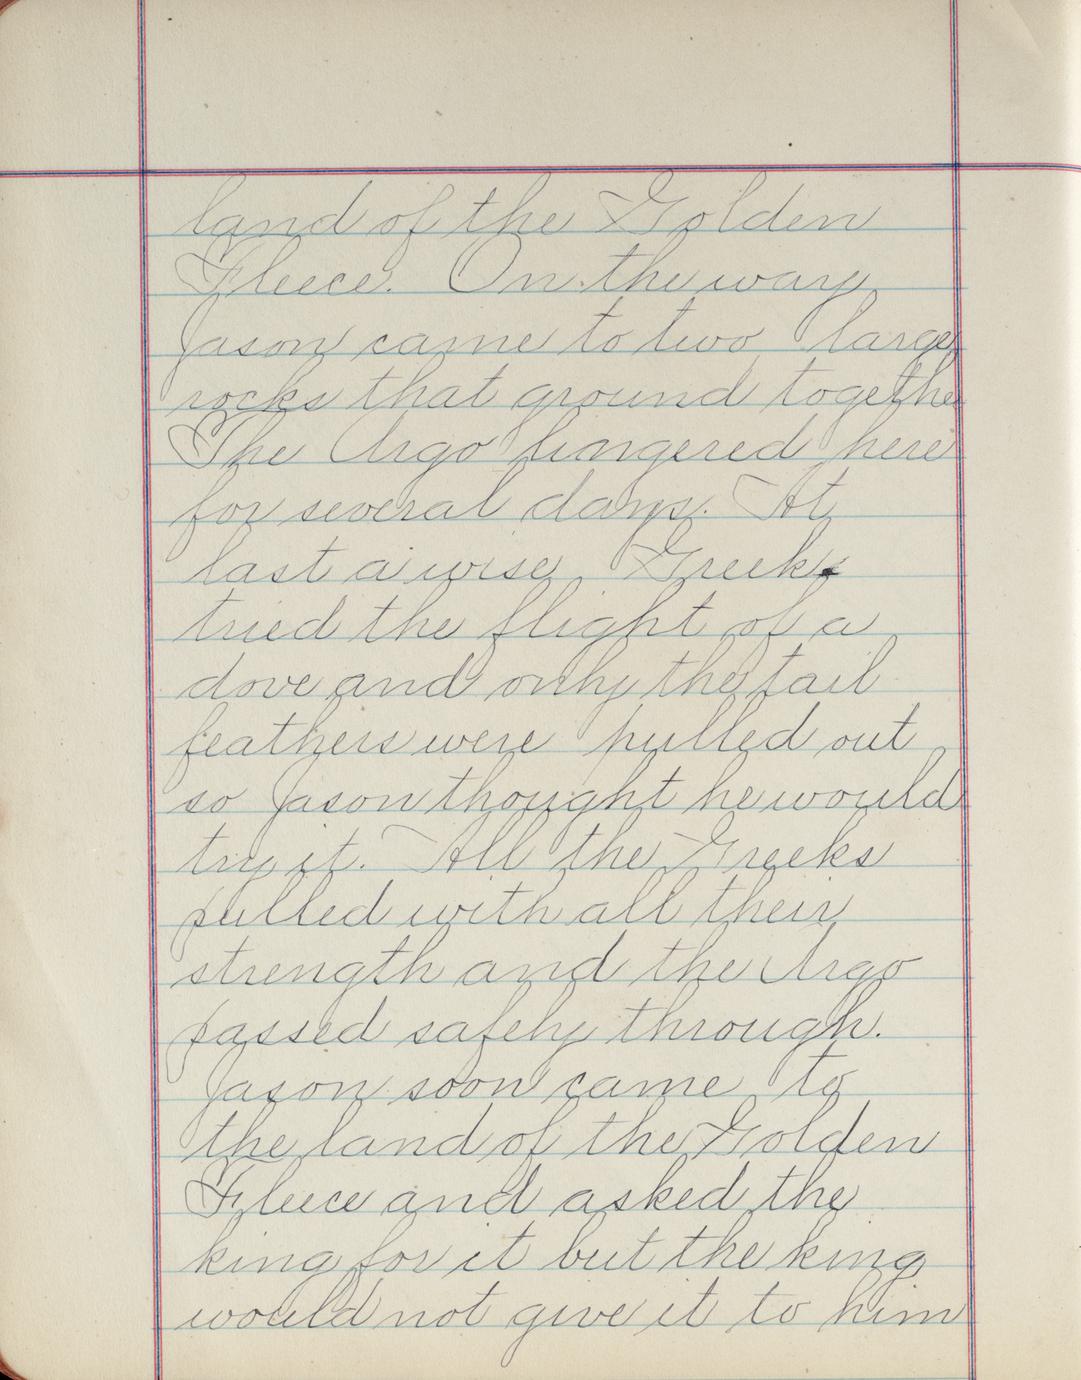 land of the Golden
Fleece. On the way
Jason came to two large
rocks that ground togethe
The Argo lingered here
for several days. At
last a wise Greek
tried the flight of a
dove and only the tail
feathers were pulled out
so Jason thought he would
try it. All the Greeks
pulled with all their
strength and the Argo
passed safely through.
Jason soon came to
the land of the Golden
Fleece and asked the
king for it but the king
would not give it to him